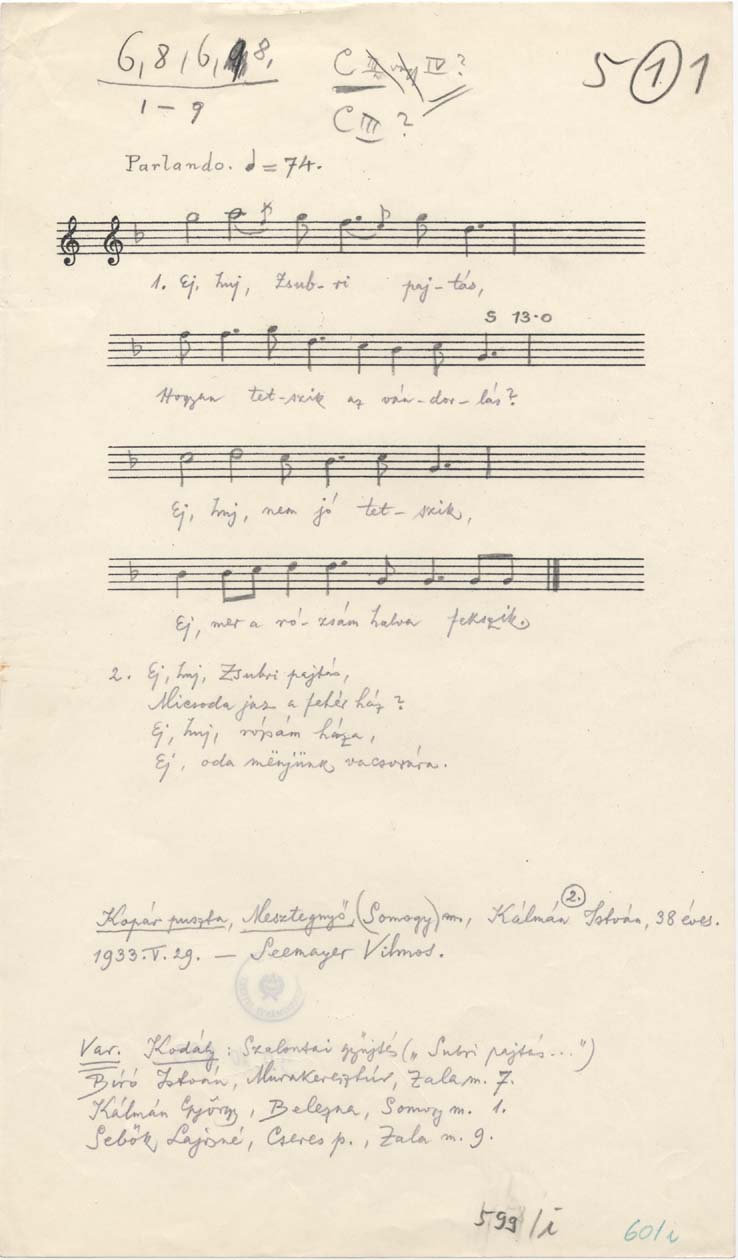 6, 8, 6, 8,
1 - 9
C III vagy IV?
C III ?
5 1 1
Parlando. = 74.
1. Ej, huj, Zsub-ri paj-tás,
S 13-0
Hogyan tet-szik az ván-dor-lás?
Ej, huj, nem jó tet-szik,
Ej, mer a ró-zsám halva fekszik.
2. Ej, huj, Zsubri pajtás,
Micsoda jaz a fehér ház?
Ej, huj, rózsám háza,
Ej, oda mënjünk vacsorára.
Kopár puszta, Mesztegnyő, (Somogy) m., Kálmán 2. István, 38 éves.
1933. V. 29. — Seemayer Vilmos.
Var. Kodály: Szalontai gyűjtés („Subri pajtás...")
Bíró István, Murakeresztúr, Zala m. 7.
Kálmán György, Belezna, Somogy m. 1.
Sebők Lajosné, Cseres p., Zala m. 9.
599/i
60/i